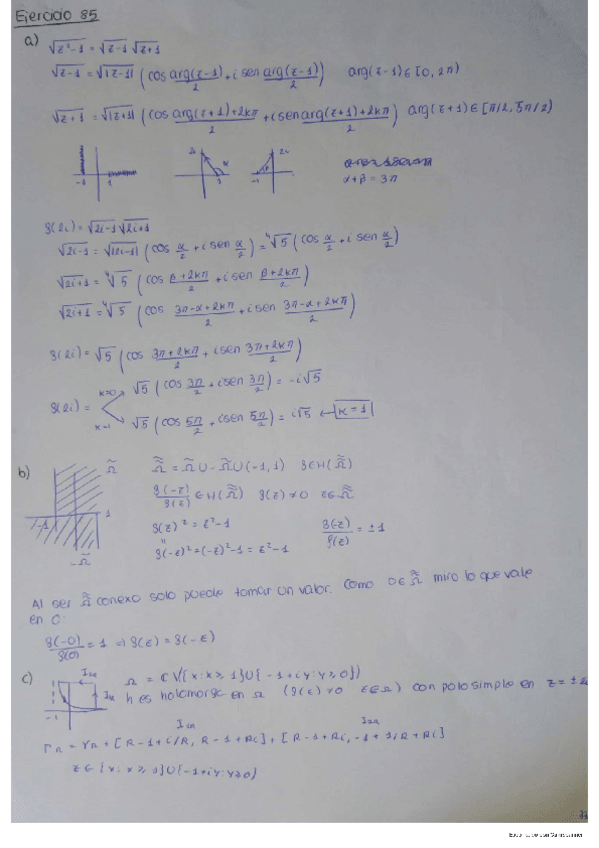 Ejercicio 35
a) √z²-1 = √z-1 √z+1
√z-1 = √|z-1| (cos arg(z-1)/2 + i sen arg(z-1)/2) arg(z-1) ∈ [0, 2π)
√z+1 = √|z+1| (cos arg(z+1)+2kπ/2 + i sen arg(z+1)+2kπ/2) arg(z+1) ∈ [π/2, 5π/2)
-1 1
2i α 1
-1 2i
α+β = 3π
g(2i) = √2i-1 √2i+1
√2i-1 = √|2i-1| (cos α/2 + i sen α/2) = ⁴√5 (cos α/2 + i sen α/2)
√2i+1 = ⁴√5 (cos β+2kπ/2 + i sen β+2kπ/2)
√2i+1 = ⁴√5 (cos 3π-α+2kπ/2 + i sen 3π-α+2kπ/2)
g(2i) = √5 (cos 3π+2kπ/2 + i sen 3π+2kπ/2)
k=0 √5 (cos 3π/2 + i sen 3π/2) = -i√5
g(2i) =
k=1 √5 (cos 5π/2 + i sen 5π/2) = i√5 ← k=1
b)
g(-z)/g(z) g(z) ≠ 0
g(z)² = z²-1
g(-z)² = (-z)²-1 = z²-1
g(-z)/g(z) = ±1
Al ser conexo solo puede tomar un valor. Como 0∈ miro lo que vale
en 0:
g(-0)/g(0) = 1 ⇒ g(z) = g(-z)
c) Ω = ℂ\({x: x≥1}∪{-1+iy: y≥0})
h es holomorfa en Ω (g(z)≠0 z∈Ω) con polo simple en z=±
z∈{x: x≥1}∪{-1+iy: y≥0}